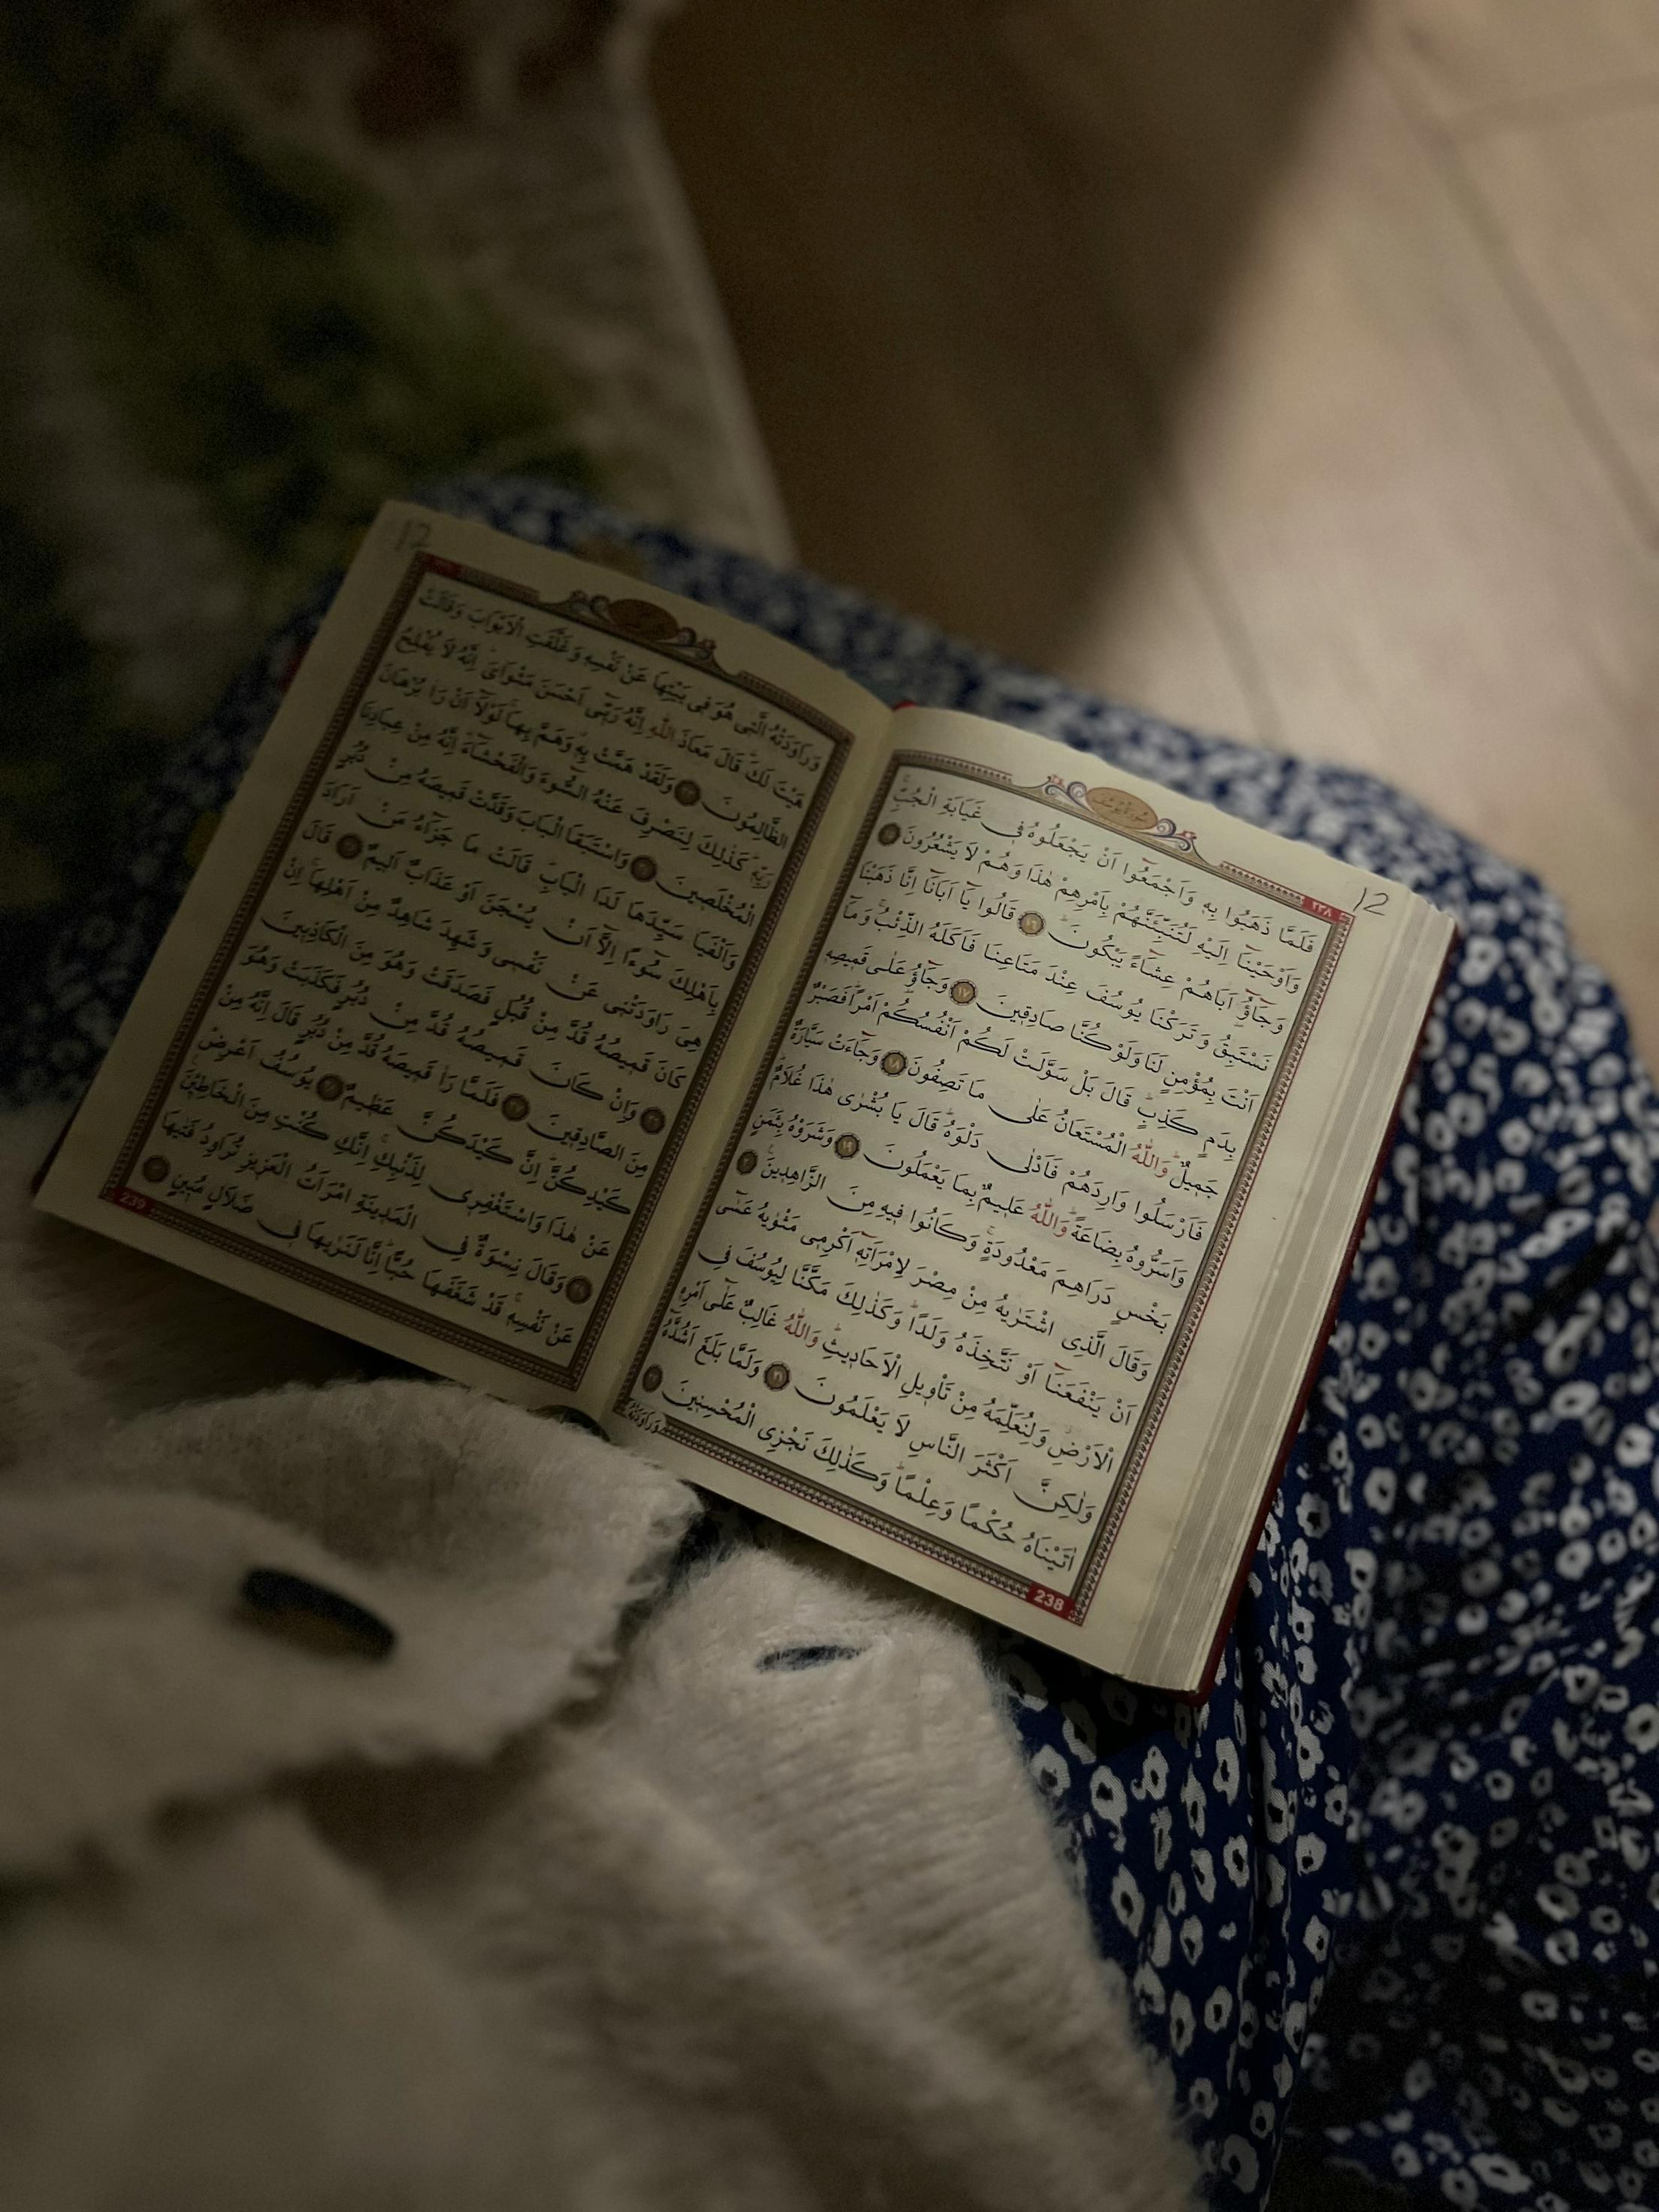 12
٢٣٨
سُورَةُ يُوسُفَ
فَلَمَّا ذَهَبُوا بِهِ وَاَجْمَعُٓوا اَنْ يَجْعَلُوهُ فٖى غَيَابَةِ الْجُبِّۚ
وَاَوْحَيْنَٓا اِلَيْهِ لَتُنَبِّئَنَّهُمْ بِاَمْرِهِمْ هٰذَا وَهُمْ لَا يَشْعُرُونَ ١٥
وَجَٓاؤُٓ اَبَاهُمْ عِشَٓاءً يَبْكُونَۜ ١٦ قَالُوا يَٓا اَبَانَٓا اِنَّا ذَهَبْنَا
نَسْتَبِقُ وَتَرَكْنَا يُوسُفَ عِنْدَ مَتَاعِنَا فَاَكَلَهُ الذِّئْبُۚ وَمَٓا
اَنْتَ بِمُؤْمِنٍ لَنَا وَلَوْ كُنَّا صَادِقٖينَ ١٧ وَجَٓاؤُ۫ عَلٰى قَمٖيصِهٖ
بِدَمٍ كَذِبٍۜ قَالَ بَلْ سَوَّلَتْ لَكُمْ اَنْفُسُكُمْ اَمْرًاۜ فَصَبْرٌ
جَمٖيلٌۜ وَاللّٰهُ الْمُسْتَعَانُ عَلٰى مَا تَصِفُونَ ١٨ وَجَٓاءَتْ سَيَّارَةٌ
فَاَرْسَلُوا وَارِدَهُمْ فَاَدْلٰى دَلْوَهُۜ قَالَ يَا بُشْرٰى هٰذَا غُلَامٌۜ
وَاَسَرُّوهُ بِضَاعَةًۜ وَاللّٰهُ عَلٖيمٌ بِمَا يَعْمَلُونَ ١٩ وَشَرَوْهُ بِثَمَنٍ
بَخْسٍ دَرَاهِمَ مَعْدُودَةٍۚ وَكَانُوا فٖيهِ مِنَ الزَّاهِدٖينَ۟ ٢٠
وَقَالَ الَّذِى اشْتَرٰيهُ مِنْ مِصْرَ لِامْرَاَتِهٖٓ اَكْرِمٖى مَثْوٰيهُ عَسٰٓى
اَنْ يَنْفَعَنَٓا اَوْ نَتَّخِذَهُ وَلَدًاۜ وَكَذٰلِكَ مَكَّنَّا لِيُوسُفَ فِى
الْاَرْضِۘ وَلِنُعَلِّمَهُ مِنْ تَاْوٖيلِ الْاَحَادٖيثِۜ وَاللّٰهُ غَالِبٌ عَلٰٓى اَمْرِهٖ
وَلٰكِنَّ اَكْثَرَ النَّاسِ لَا يَعْلَمُونَ ٢١ وَلَمَّا بَلَغَ اَشُدَّهُٓ
اٰتَيْنَاهُ حُكْمًا وَعِلْمًاۜ وَكَذٰلِكَ نَجْزِى الْمُحْسِنٖينَ ٢٢
وَرَاوَدَتْهُ
238
12
وَرَاوَدَتْهُ الَّتٖى هُوَ فٖى بَيْتِهَا عَنْ نَفْسِهٖ وَغَلَّقَتِ الْاَبْوَابَ وَقَالَتْ
هَيْتَ لَكَۜ قَالَ مَعَاذَ اللّٰهِ اِنَّهُ رَبّٖٓى اَحْسَنَ مَثْوَاىَۜ اِنَّهُ لَا يُفْلِحُ
الظَّالِمُونَ ٢٣ وَلَقَدْ هَمَّتْ بِهٖۚ وَهَمَّ بِهَاۚ لَوْلَٓا اَنْ رَاٰ بُرْهَانَ
رَبِّهٖۜ كَذٰلِكَ لِنَصْرِفَ عَنْهُ السُّٓوءَ وَالْفَحْشَٓاءَۜ اِنَّهُ مِنْ عِبَادِنَا
الْمُخْلَصٖينَ ٢٤ وَاسْتَبَقَا الْبَابَ وَقَدَّتْ قَمٖيصَهُ مِنْ دُبُرٍ
وَاَلْفَيَا سَيِّدَهَا لَدَا الْبَابِۜ قَالَتْ مَا جَزَٓاءُ مَنْ اَرَادَ
بِاَهْلِكَ سُٓوءًا اِلَّٓا اَنْ يُسْجَنَ اَوْ عَذَابٌ اَلٖيمٌ ٢٥ قَالَ
هِىَ رَاوَدَتْنٖى عَنْ نَفْسٖى وَشَهِدَ شَاهِدٌ مِنْ اَهْلِهَاۚ اِنْ
كَانَ قَمٖيصُهُ قُدَّ مِنْ قُبُلٍ فَصَدَقَتْ وَهُوَ مِنَ الْكَاذِبٖينَ
٢٦ وَاِنْ كَانَ قَمٖيصُهُ قُدَّ مِنْ دُبُرٍ فَكَذَبَتْ وَهُوَ
مِنَ الصَّادِقٖينَ ٢٧ فَلَمَّا رَاٰ قَمٖيصَهُ قُدَّ مِنْ دُبُرٍ قَالَ اِنَّهُ مِنْ
كَيْدِكُنَّۜ اِنَّ كَيْدَكُنَّ عَظٖيمٌ ٢٨ يُوسُفُ اَعْرِضْ
عَنْ هٰذَا وَاسْتَغْفِرٖى لِذَنْبِكِۚ اِنَّكِ كُنْتِ مِنَ الْخَاطِـٖٔينَ۟
٢٩ وَقَالَ نِسْوَةٌ فِى الْمَدٖينَةِ امْرَاَتُ الْعَزٖيزِ تُرَاوِدُ فَتٰيهَا
عَنْ نَفْسِهٖۚ قَدْ شَغَفَهَا حُبًّاۜ اِنَّا لَنَرٰيهَا فٖى ضَلَالٍ مُبٖينٍ ٣٠
239